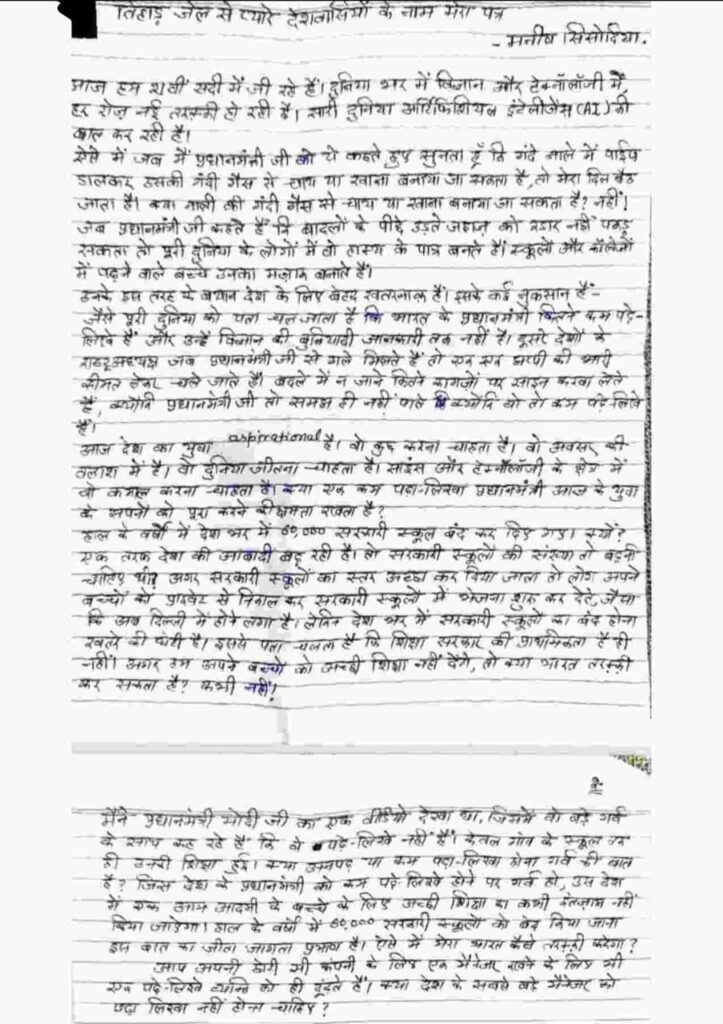 तिहाड़ जेल से प्यारे देशवासियों के नाम मेरा पत्र
- मनीष सिसोदिया.
आज हम 21वीं सदी में जी रहे हैं। दुनिया भर में विज्ञान और टेक्नॉलॉजी में,
हर रोज़ नई तरक्की हो रही है। सारी दुनिया आर्टिफिशियल इंटेलीजेंस (AI) की
बात कर रही है।
ऐसे में जब मैं प्रधानमंत्री जी को ये कहते हुए सुनता हूँ कि गंदे नाले में पाईप
डालकर उसकी गंदी गैस से चाय या खाना बनाया जा सकता है, तो मेरा दिल बैठ
जाता है। क्या नाली की गंदी गैस से चाय या खाना बनाया जा सकता है? नहीं!
जब प्रधानमंत्री जी कहते हैं कि बादलों के पीछे उड़ते जहाज़ को रडार नहीं पकड़
सकता तो पूरी दुनिया के लोगों में वो हास्य के पात्र बनते हैं। स्कूलों और कॉलेजों
में पढ़ने वाले बच्चे उनका मज़ाक़ बनाते हैं।
उनके इस तरह के बयान देश के लिए बेहद खतरनाक हैं। इसके कई नुकसान हैं -
जैसे पूरी दुनिया को पता चल जाता है कि भारत के प्रधानमंत्री कितने कम पढ़े-
लिखे हैं और उन्हें विज्ञान की बुनियादी जानकारी तक नहीं है। दूसरे देशों के
राष्ट्राध्यक्ष जब प्रधानमंत्री जी से गले मिलते हैं तो एक एक झप्पी की भारी
कीमत लेकर चले जाते हैं। बदले में न जाने कितने कागज़ों पर साइन करवा लेते
हैं, क्योंकि प्रधानमंत्री जी तो समझ ही नहीं पाते क्योंकि वो तो कम पढ़े-लिखे
हैं।
आज देश का युवा aspirational है। वो कुछ करना चाहता है। वो अवसर की
तलाश में है। वो दुनिया जीतना चाहता है। साइंस और टेक्नॉलॉजी के क्षेत्र में
वो कमाल करना चाहता है। क्या एक कम पढ़ा-लिखा प्रधानमंत्री आज के युवा
के सपनों को पूरा करने की क्षमता रखता है?
हाल के वर्षों में देश भर में 60,000 सरकारी स्कूल बंद कर दिए गए। क्यों?
एक तरफ देश की आबादी बढ़ रही है। तो सरकारी स्कूलों की संख्या तो बढ़नी
चाहिए थी? अगर सरकारी स्कूलों का स्तर अच्छा कर दिया जाता तो लोग अपने
बच्चों को प्राइवेट से निकाल कर सरकारी स्कूलों में भेजना शुरू कर देते, जैसा
कि अब दिल्ली में होने लगा है। लेकिन देश भर में सरकारी स्कूलों का बंद होना
खतरे की घंटी है। इससे पता चलता है कि शिक्षा सरकार की प्राथमिकता है ही
नहीं। अगर हम अपने बच्चों को अच्छी शिक्षा नहीं देंगे, तो क्या भारत तरक्की
कर सकता है? कभी नहीं!
2-
मैंने प्रधानमंत्री मोदी जी का एक वीडियो देखा था, जिसमें वो बड़े गर्व
के साथ कह रहे हैं कि वे पढ़े-लिखे नहीं हैं। केवल गांव के स्कूल तक
ही उनकी शिक्षा हुई। क्या अनपढ़ या कम पढ़ा-लिखा होना गर्व की बात
है? जिस देश के प्रधानमंत्री को कम पढ़े-लिखे होने पर गर्व हो, उस देश
में एक आम आदमी के बच्चे के लिए अच्छी शिक्षा का कभी इंतज़ाम नहीं
किया जाएगा। हाल के वर्षों में 60,000 सरकारी स्कूलों को बंद किया जाना
इस बात का जीता जागता प्रमाण है। ऐसे में मेरा भारत कैसे तरक्की करेगा?
आप अपनी छोटी सी कंपनी के लिए एक मैनेजर रखने के लिए भी
एक पढ़े-लिखे व्यक्ति को ही ढूंढते हैं। क्या देश के सबसे बड़े मैनेजर को
पढ़ा लिखा नहीं होना चाहिए?